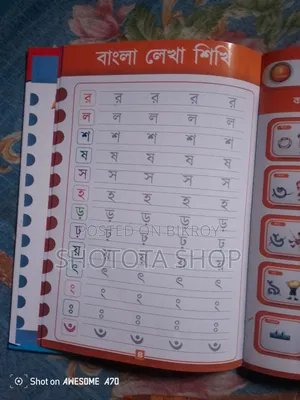 বাংলা লেখা শিখি
র র র র র
গ গ গ গ গ
শ শ শ শ শ
ষ ষ ষ ষ ষ
স স স স স
হ হ হ হ হ
ড় ড় ড় ড় ড়
ঢ় ঢ় ঢ় ঢ় ঢ়
য় য় য় য় য়
ৎ ৎ ৎ ৎ ৎ
ং ং ং ং ং
ঃ ঃ ঃ ঃ ঃ
ঁ ঁ ঁ ঁ ঁ
POSTED ON BIKROY
SHOTOTA SHOP
Shot on AWESOME A70